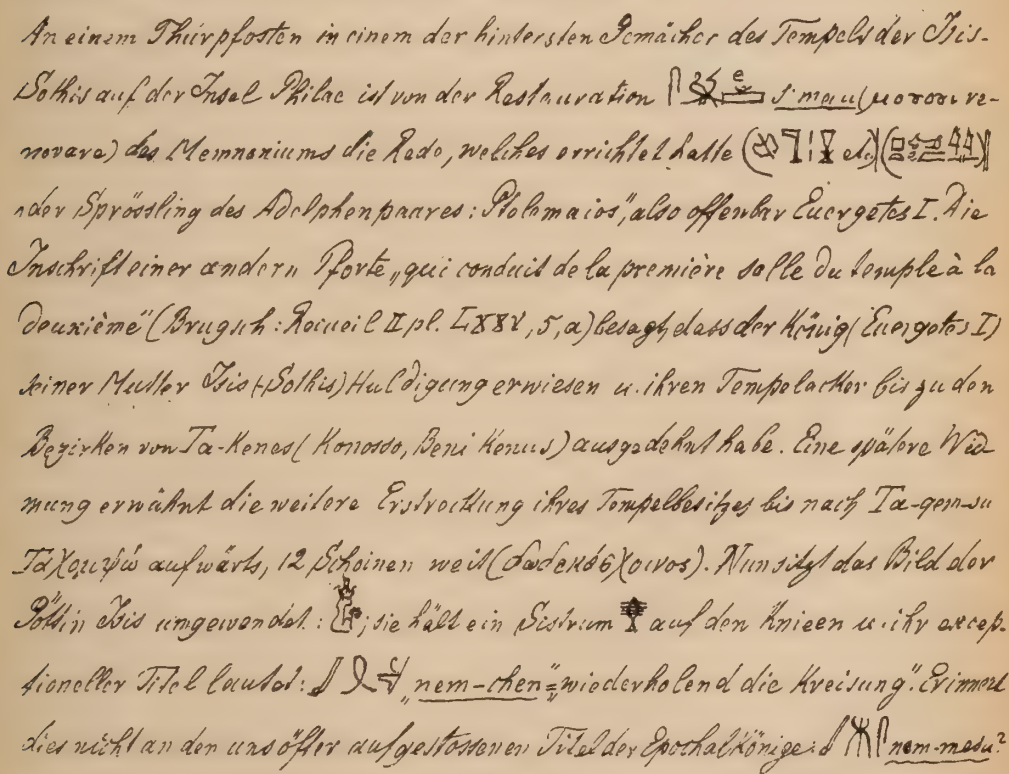 An einem Thürpfosten in einem der hintersten Gemächer des Tempels der Isis-
Sothis auf der Insel Philae ist von der Restauration s'mau (renovare)
des Memnoniums die Rede, welches errichtet hatte etc.
„der Sprössling des Adelphenpaares: Ptolemaios“, also offenbar Euergetes I. Die
Inschrift einer andern Pforte „qui conduit de la première salle du temple à la
deuxième“ (Brugsch: Recueil II pl. LXXV, 5, a) besagt, dass der König (Euergetes I)
seiner Mutter Isis (-Sothis) Huldigung erwiesen u. ihren Tempelacker bis zu den
Bezirken von Ta-Kenes (Konosso, Beni Kenus) ausgedehnt habe. Eine spätere Wid-
mung erwähnt die weitere Erstreckung ihres Tempelbesitzes bis nach Ta-qem-su
Ταχομψώ aufwärts, 12 Schoinen weit (δωδεκάσχοινος). Nun sitzt das Bild der
Göttin Isis umgewendet: ; sie hält ein Sistrum auf den Knieen u. ihr excep-
tioneller Titel lautet: „nem-chen“ = „wiederholend die Kreisung“. Erinnert
dies nicht an den uns öfter aufgestossenen Titel der Epochalkönige: nem-mesu?